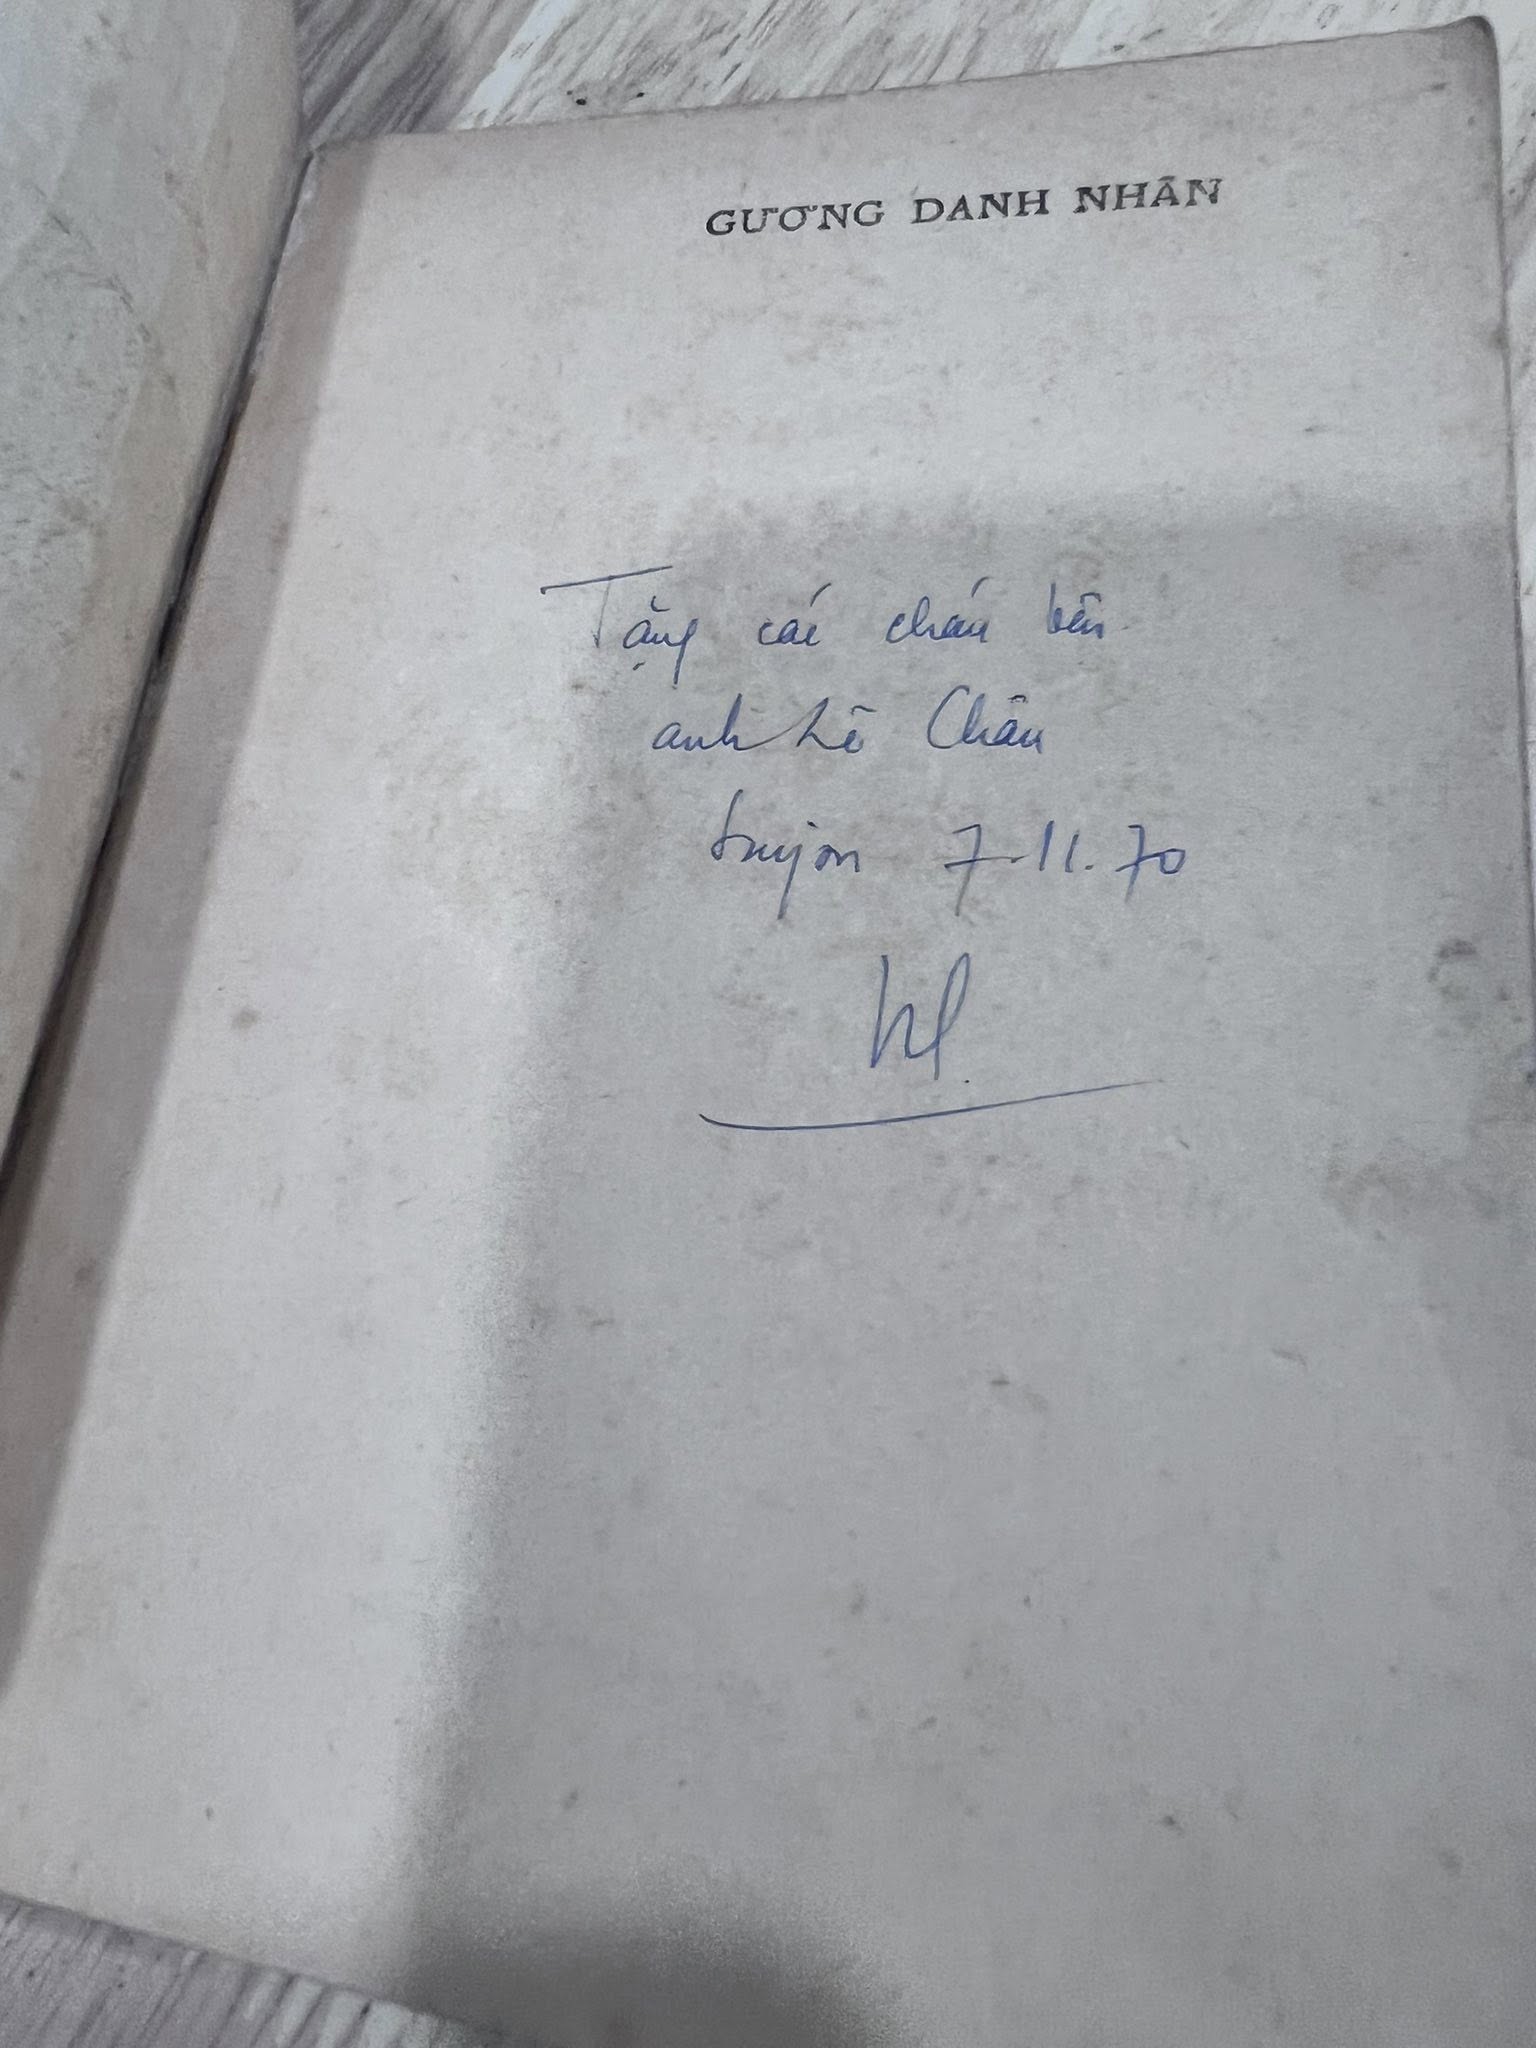 GƯƠNG DANH NHÂN
Tặng các cháu bên
anh Lê Châu
7.11.70